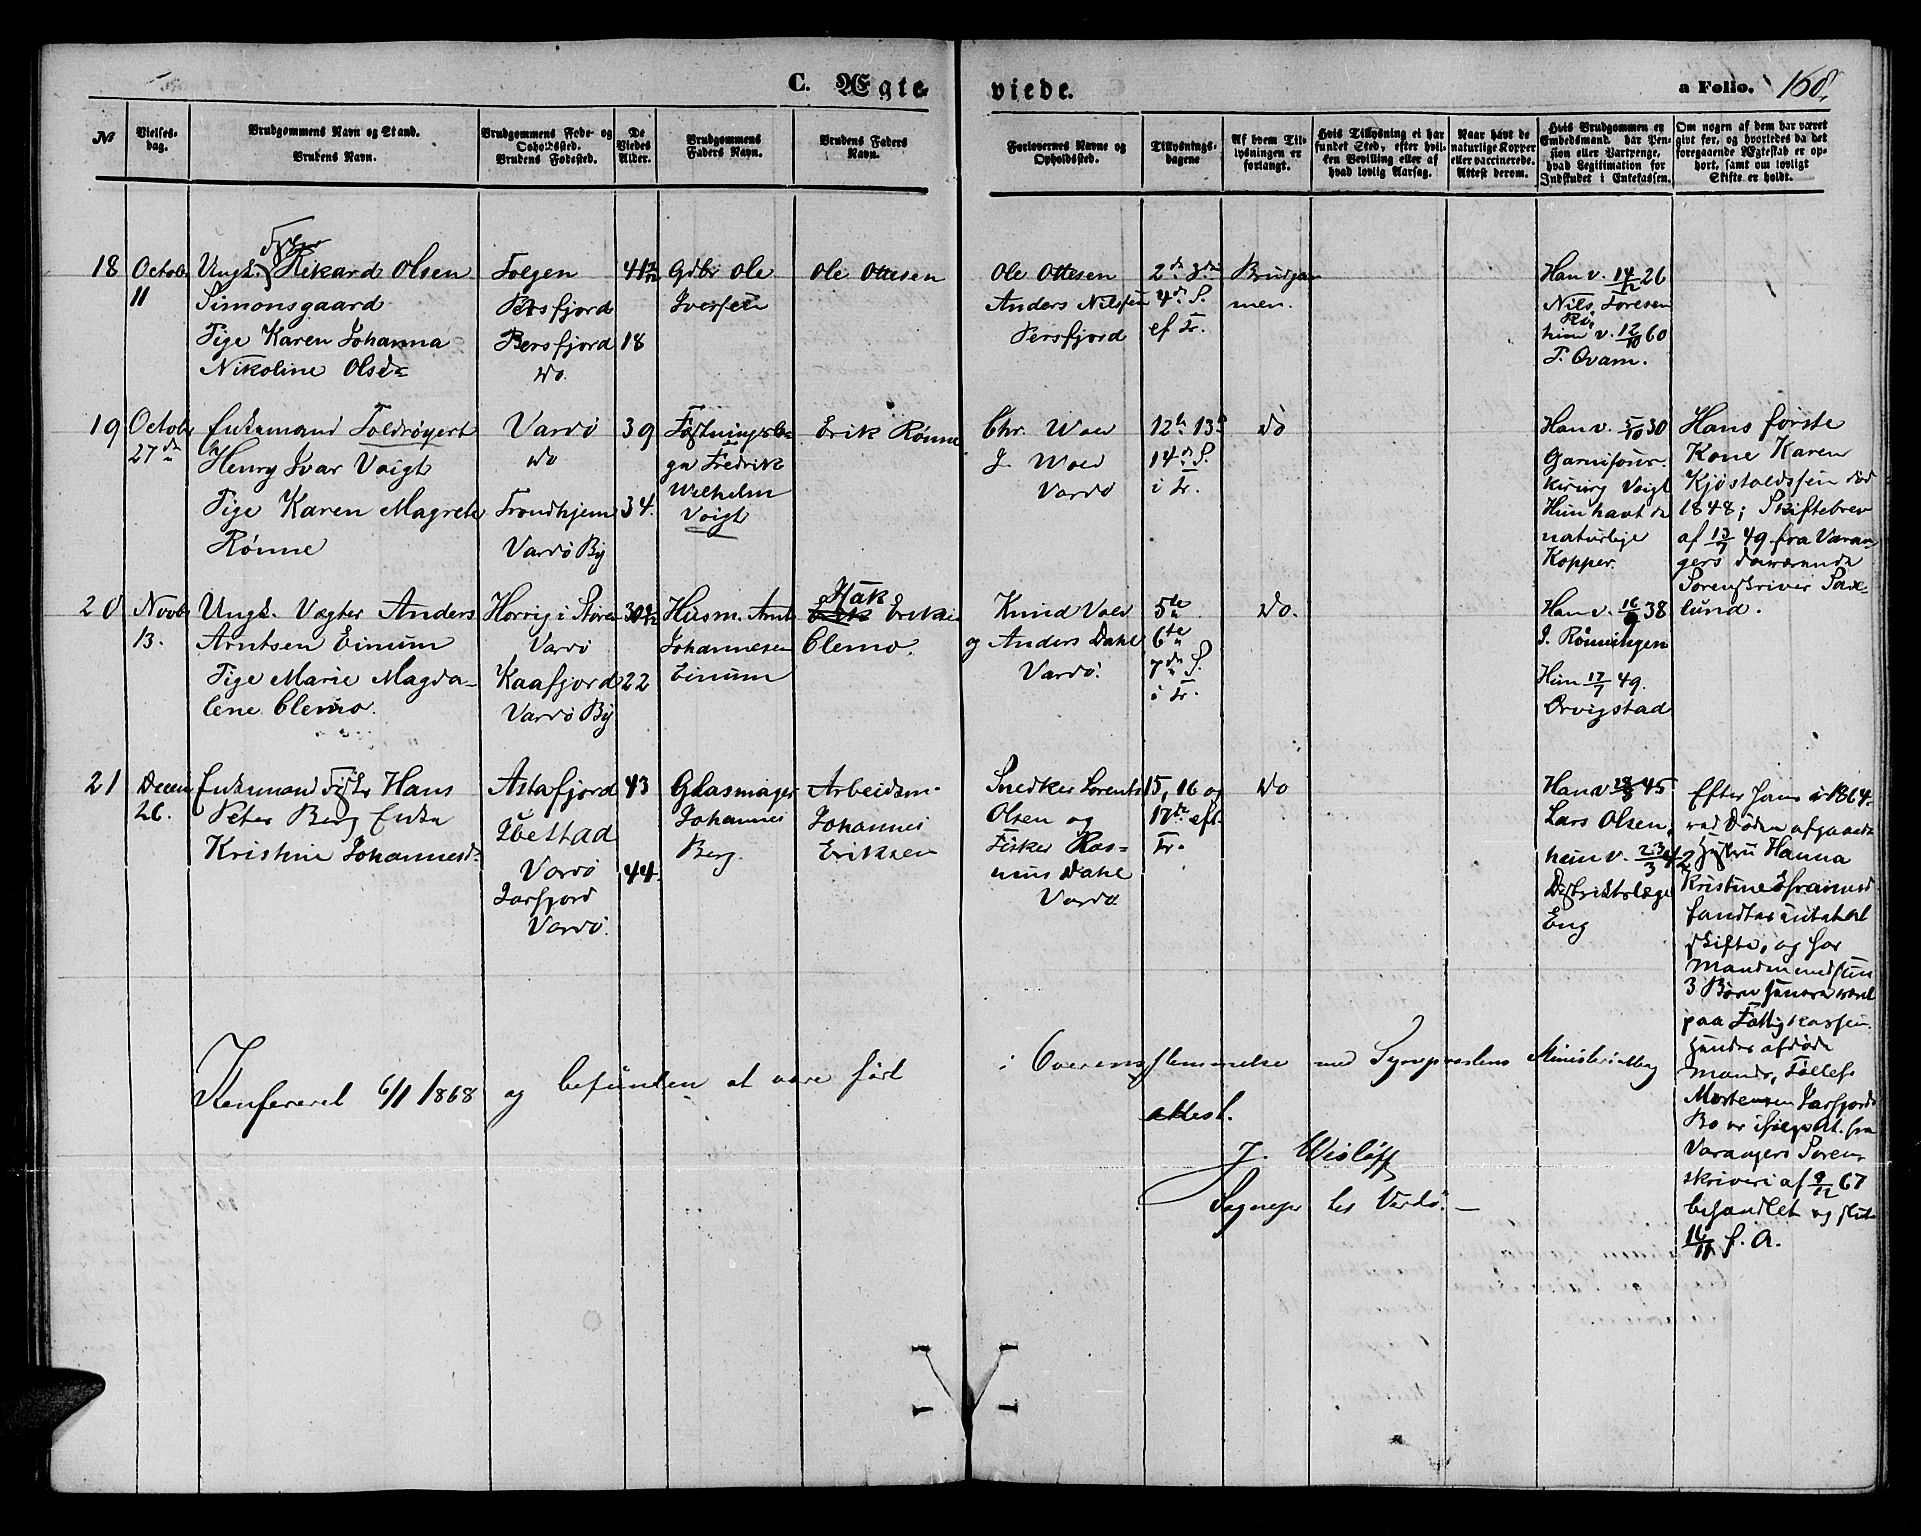 C. Ægte
viede.
a Folio. 168.
No
Vielses-
dag.
Brudgommens Navn og Stand.
Brudens Navn.
Brudgommens Føde- og
Opholdssted.
Brudens Fødested.
De
Viedes
Alder.
Brudgommens
Faders Navn.
Brudens Faders
Navn.
Forlovernes Navne og
Opholdssted.
Tillysnings-
dagene
Af hvem Til-
lysningen er
forlangt.
Hvis Tillysning ei har
fundet Sted, efter hvil-
ken Bevilling eller af
hvad lovlig Aarsag.
Naar havt de
naturlige Kopper
eller vaccinerede.
Attest derom.
Hvis Brudgommen er
Embedsmand, har Pen-
sion eller Vartpenge,
hvad Legitimation for
Indskudet i Enkekassen.
Om nogen af dem har været
gift før, og hvorledes da det
foregaaende Ægteskab er op-
hørt, samt om lovligt
Skifte er holdt.
18
Octob
11
Ungk. Rikard Olsen
Simonsgaard
Pige Karen Johanna
Nikoline Olsd.
Tolgen
Persfjord
Persfjord
do.
41
18
Gdbr Ole
Iversen
Ole Ottesen
Ole Ottesen
Anders Nilssen
Persfjord
2de 3die
4de S.
ef Tr.
Brudgom
men.
Han v. 14/12 26
Nils Foresen
hun v. 12/10 60
P. Qvam.
19
Octob
27de
Enkemand Toldrøyert
Henry Ivar Voigt
Pige Karen Magrete
Rønne
Vardø
do
Trondhjem
Vardø By
39
34.
Fæstningsbe
gn Fredrik
Wilhelm
Voigt
Erik Rønne
Chr. Wold
J. Wold
Vardø
12te 13de
14de S.
i Tr.
do
Han v. 5/10 30
Garnisons-
kirurg Voigt
Hun havt de
naturlige
Kopper.
Hans første
Kone Karen
Kjøstoldssen død
1848; Skiftebrev
af 13/7 49 fra Varan-
gers daværende
Sorenskriver Sax-
lund.
20
Novb
13.
Ungk. Vægter Anders
Arntsen Einum
Pige Marie Magda-
lene Clemo.
Horrig i Støren
Vardø
Kaafjord
Vardø By
30
22
Husm. Arnt
Johannesen
Einum
Isak
Eriksen
Clemo.
Knud Vold
og Anders Dahl
Vardø.
5te
6te
7de S.
i Tr.
do.
Han v. 16/9 38
J. Rønningen
Hun 17/7 49.
Ørvigstad
21
Decem
26.
Enkemand Fisker Hans
Peter Berg Enke
Kristine Johannesd.
Astafjord
Ibestad
Vardø
Jarfjord
Vardø.
43
44.
Glasmager
Johannes
Berg.
Arbeidsm.
Johannes
Eriksen
Snedker Lorents
Olsen og
Fisker Ras-
mus Dahl
Vardø
15, 16 og
17de eft.
Tr.
do
Han v. 28/3 45
Lars Olsen,
hun v. 23/3 42
Distriktslæge
Eng
Efter hans i 1864
ved Døden afgaaede
Hustru Hanna
Kristine Efraimsd.
fandtes intet at
skifte, og har
Manden med sine
3 Børn senere været
paa Fattigkassen.
Hendes afdøde
Mands, Tollefs
Mortensen Jarfjords
Bo er ifølge att. fra
Varangers Soren-
skriveri af 9/12 67
behandlet og slut.
16/11 s. A.
Konfereret 6/1 1868 og befunden at være ført i Overensstemmelse med Sognepræstens Ministerialbog
attest.
J. Wisløff
Sognepr til Vardø.